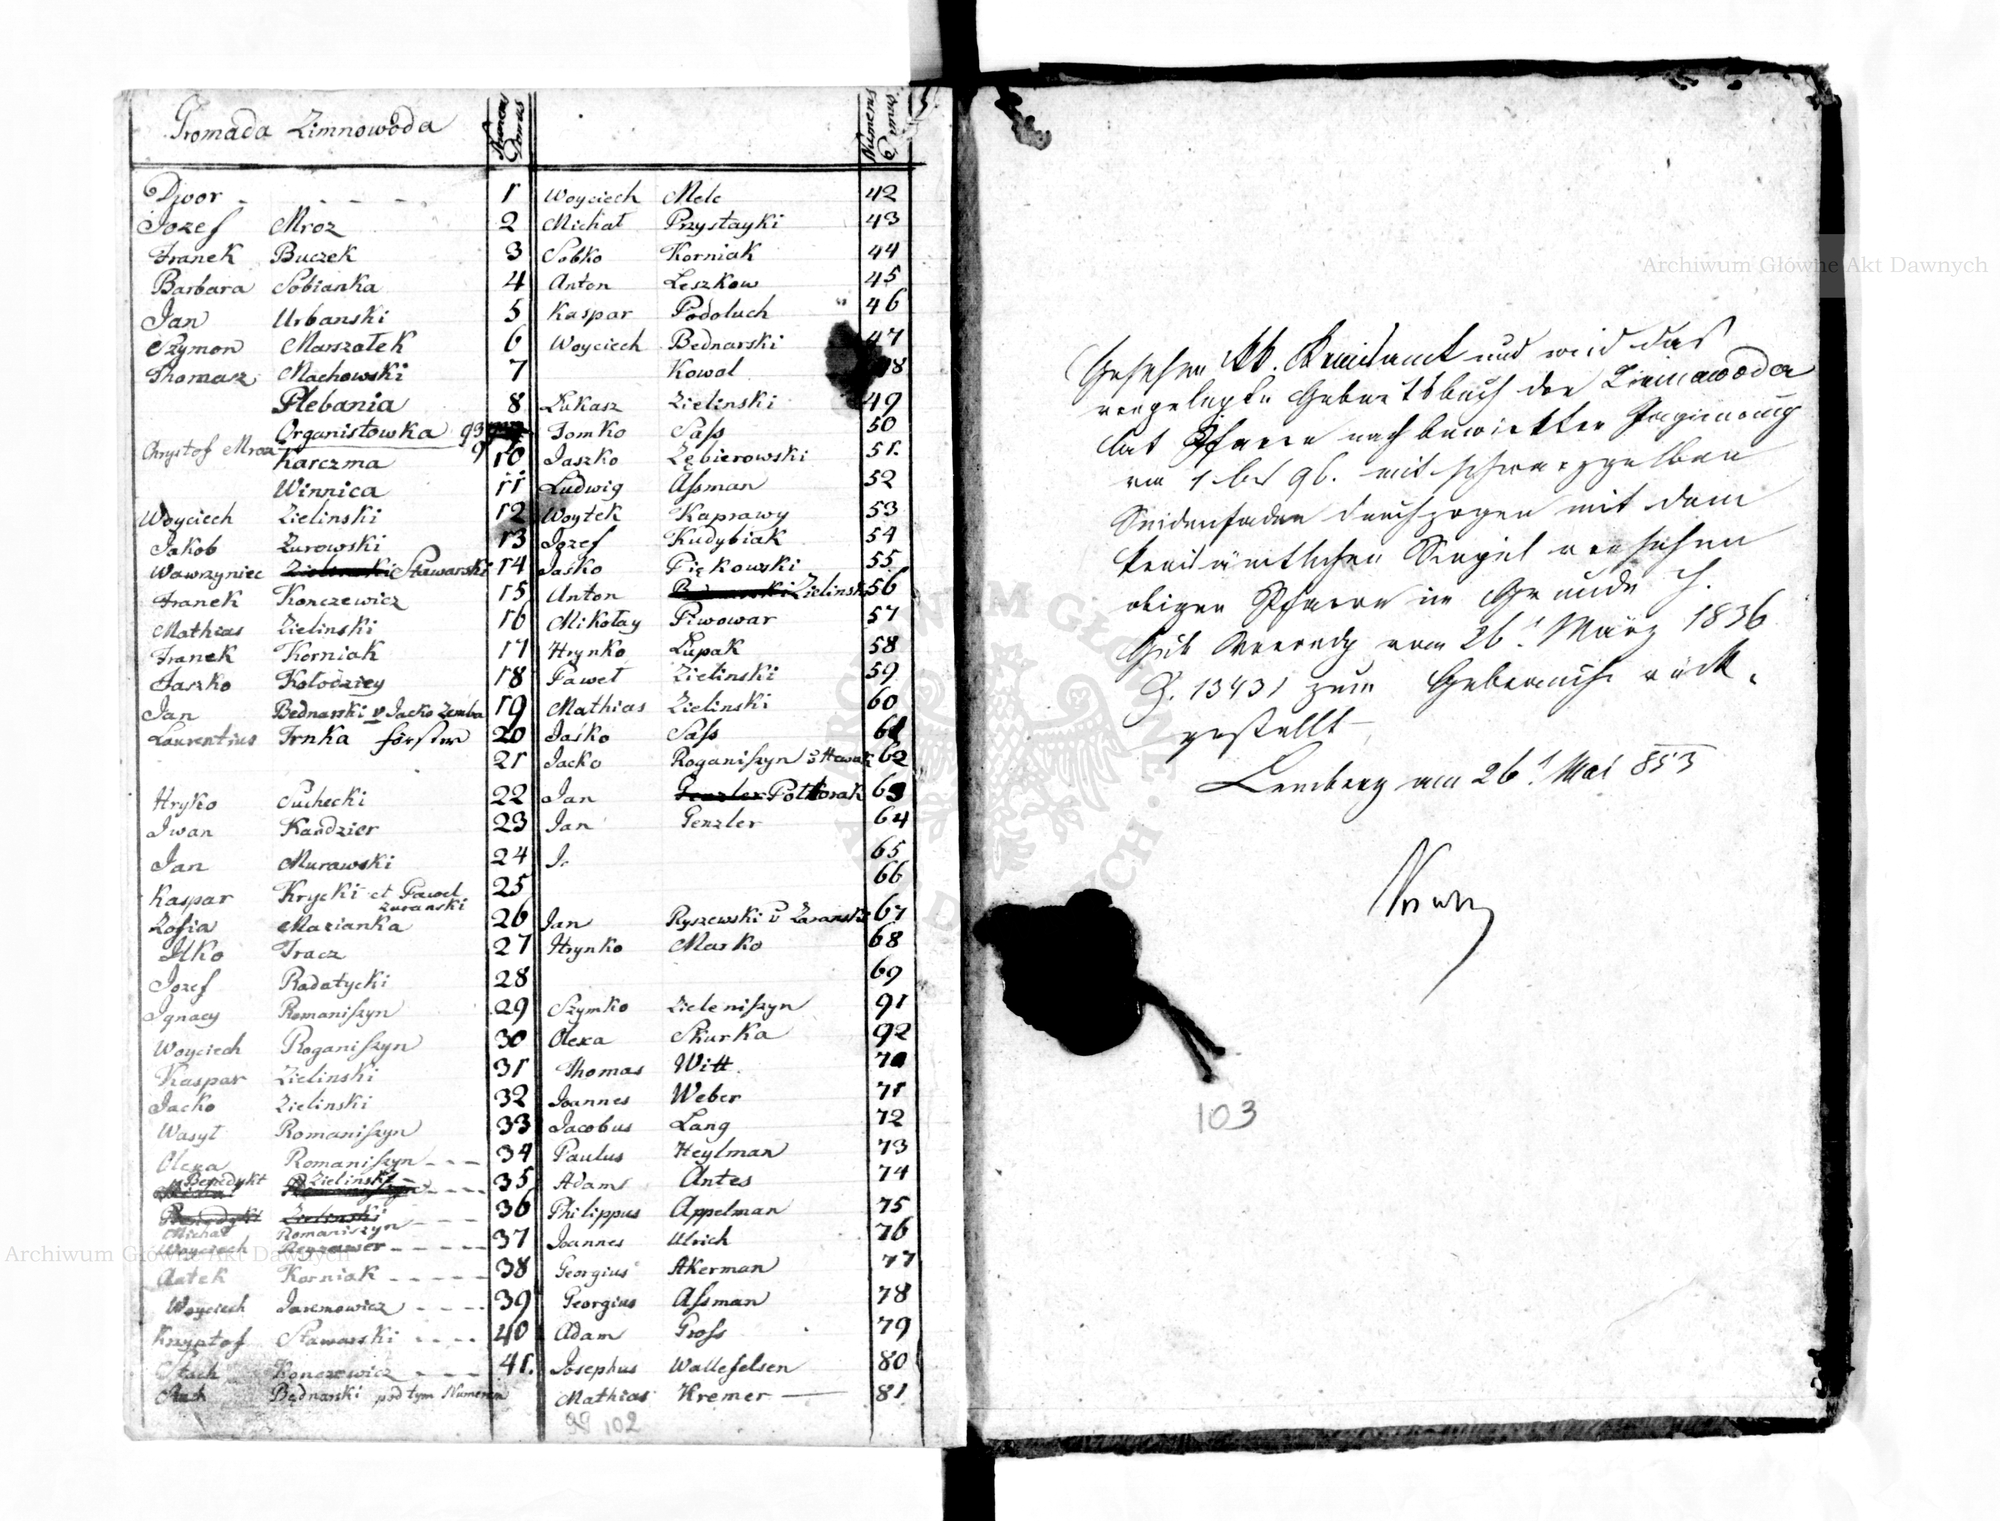 Gromada Zimnowoda Numerus Domus
Dwor - - - - 1
Jozef Mroz 2
Franek Buczek 3
Barbara Sobianka 4
Jan Urbanski 5
Szymon Marszałek 6
Thomasz Machowski 7
Plebania 8
Organistowka 93
Chrystof Mroz Karczma 9 10
Winnica 11
Woyciech Zielinski 12
Jakob Zurowski 13
Wawrzyniec Zielinski Stawarski 14
Franek Konczewicz 15
Mathias Zielinski 16
Franek Korniak 17
Jaszko Kołodziey 18
Jan Bednarski v Jacko Zemba 19
Laurentius Trnka förster 20
21
Hryko Suchecki 22
Iwan Kandzier 23
Jan Murawski 24
Kaspar Krycki et Pawel Zuranski 25
Zofia Marianka 26
Ilko Tracz 27
Jozef Radatycki 28
Ignacy Romaniszyn 29
Woyciech Roganiszyn 30
Kaspar Zielinski 31
Jacko Zielinski 32
Wasyl Romaniszyn 33
Olexa Romaniszyn - - - 34
Benedykt Zielinski - - - 35
Benedykt Zielinski - - - 36
Michał Romaniszyn
Woyciech - - - - 37
Antek Korniak - - - - 38
Woyciech Jaremowicz - - - 39
Krzysztof Stawarski - - - - 40
Stach Konczewicz - - - 41.
Bednarski pod tym Numerem
Numerus Domus
Woyciech Mele 42
Michał Przystayki 43
Sobko Korniak 44
Anton Leszkow 45
Kaspar Podoluch 46
Woyciech Bednarski 47
Kowal 48
Łukasz Zielinski 49
Tomko Sass 50
Jaszko Zębierowski 51.
Ludwig Assman 52
Woytek Kaprawy 53
Jozef Kudybiak 54
Jasko Piękowski 55
Anton Bednarski Zielinski 56
Mikołay Piwowar 57
Hrynko Łupak 58
Paweł Zielinski 59
Mathias Zielinski 60
Jaśko Sass 61
Jacko Roganiszyn 62
Jan Genzler Połtorak 63
Jan Genzler 64
J. 65
66
Jan Ryszewski v Zaranski 67
Hrynko Marko 68
69
Szymko Zieleniszyn 91
Olexa Skurka 92
Thomas Witt. 70
Joannes Weber 71
Jacobus Lang 72
Paulus Heylman 73
Adam Antes 74
Philippus Appelman 75
Joannes Ulrich 76
Georgius Akerman 77
Georgius Assman 78
Adam Gross 79
Josephus Wallefelsen 80
Mathias Kremer 81
99 102
Gesehen kk. Kreisamt und wird das
vorgelegte Geburtsbuch der Zimnawoda
lat Pfarre nach bewirkter Paginirung
von 1 bis 96. mit schwarzgelben
Seidenfaden durchzogen mit dem
kreisämtlichen Siegel versehen
obigen Pfarre im Grunde h.
Gub Verordg vom 26t März 1836
Z. 13431 zum Gebrauche rück-
gestellt
Lemberg am 26t Mai 853
103
Archiwum Główne Akt Dawnych
Archiwum Główne Akt Dawnych
ARCHIWUM GŁÓWNE AKT DAWNYCH